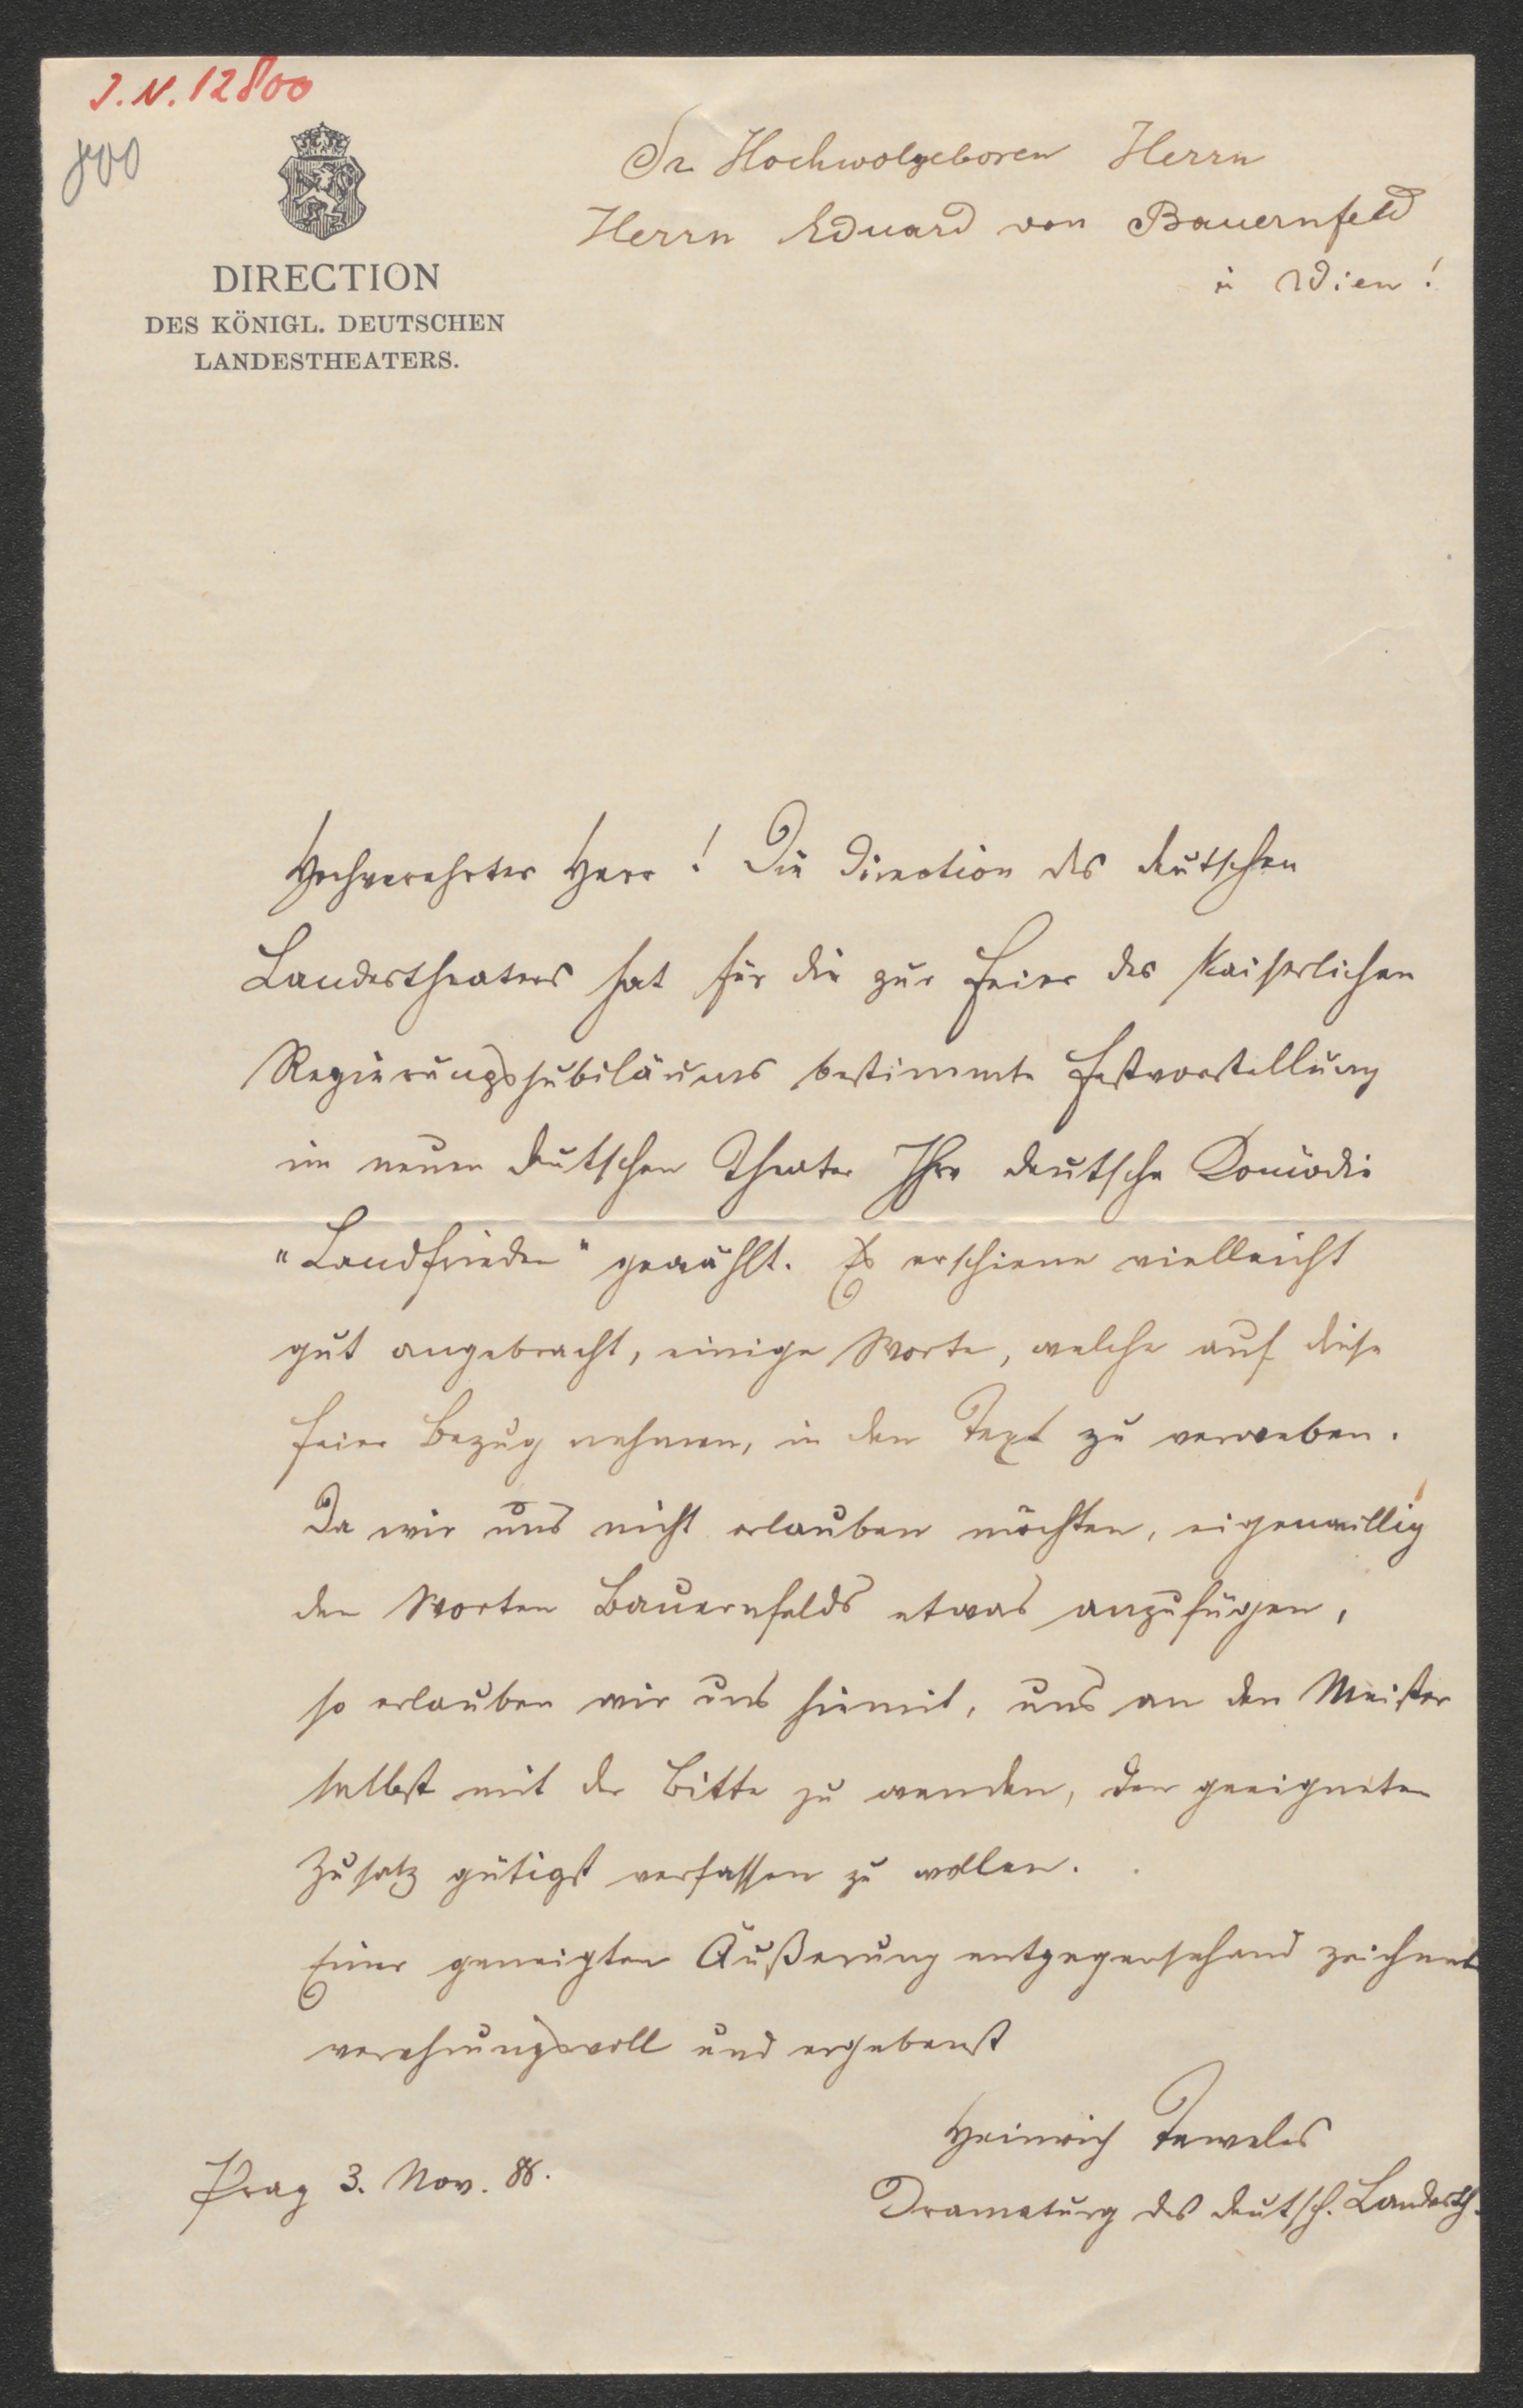 J. N. 12800
800
DIRECTION
DES KÖNIGL. DEUTSCHEN
LANDESTHEATERS.
Sr Hochwolgeboren Herrn
Herrn Eduard von Bauernfeld
in Wien!
Hochverehrter Herr! Die Direction des deutschen
Landestheaters hat für die zur Feier des kaiserlichen
Regierungsjubiläums bestimmte Festvorstellung
im neuen deutschen Theater Ihre deutsche Komödie
"Landfrieden" gewählt. Es erschiene vielleicht
gut angebracht, einige Worte, welche auf diese
Feier Bezug nehmen, in den Text zu verweben.
Da wir uns nicht erlauben möchten, eigenwillig
den Worten Bauernfelds etwas anzufügen,
so erlauben wir uns hiemit, uns an den Meister
selbst mit der Bitte zu wenden, den geeigneten
Zusatz gütigst verfassen zu wollen.
Einer geneigten Äußerung entgegensehend zeichnet
verehrungsvoll und ergebenst
Heinrich Teweles
Prag 3. Nov. 88.
Dramaturg des deutsch. Landesth.